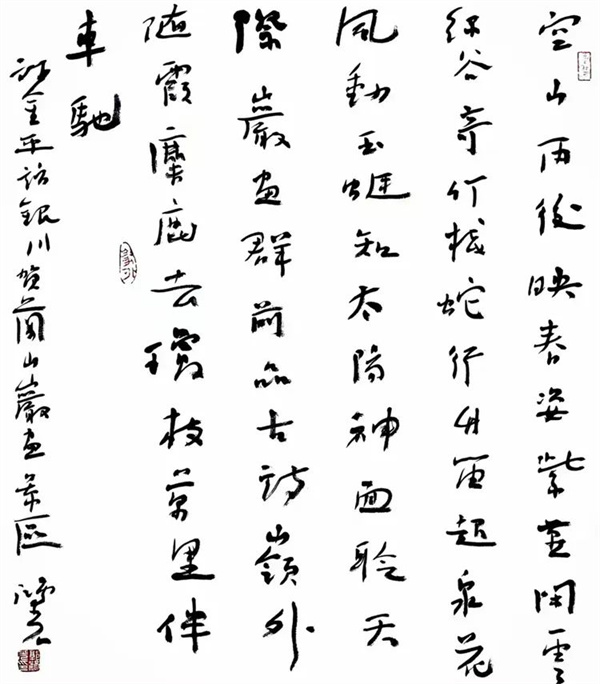 空山雨後映春姿紫閑雲
綠谷奇竹棧蛇行舟笛起泉花
風動玉蜓知太陽神面聆天
際巖畫群前品古詩嶺外
隨霞麋鹿去瓊枝萬里伴
車馳
記金平訪銀川賀蘭山巖畫景區